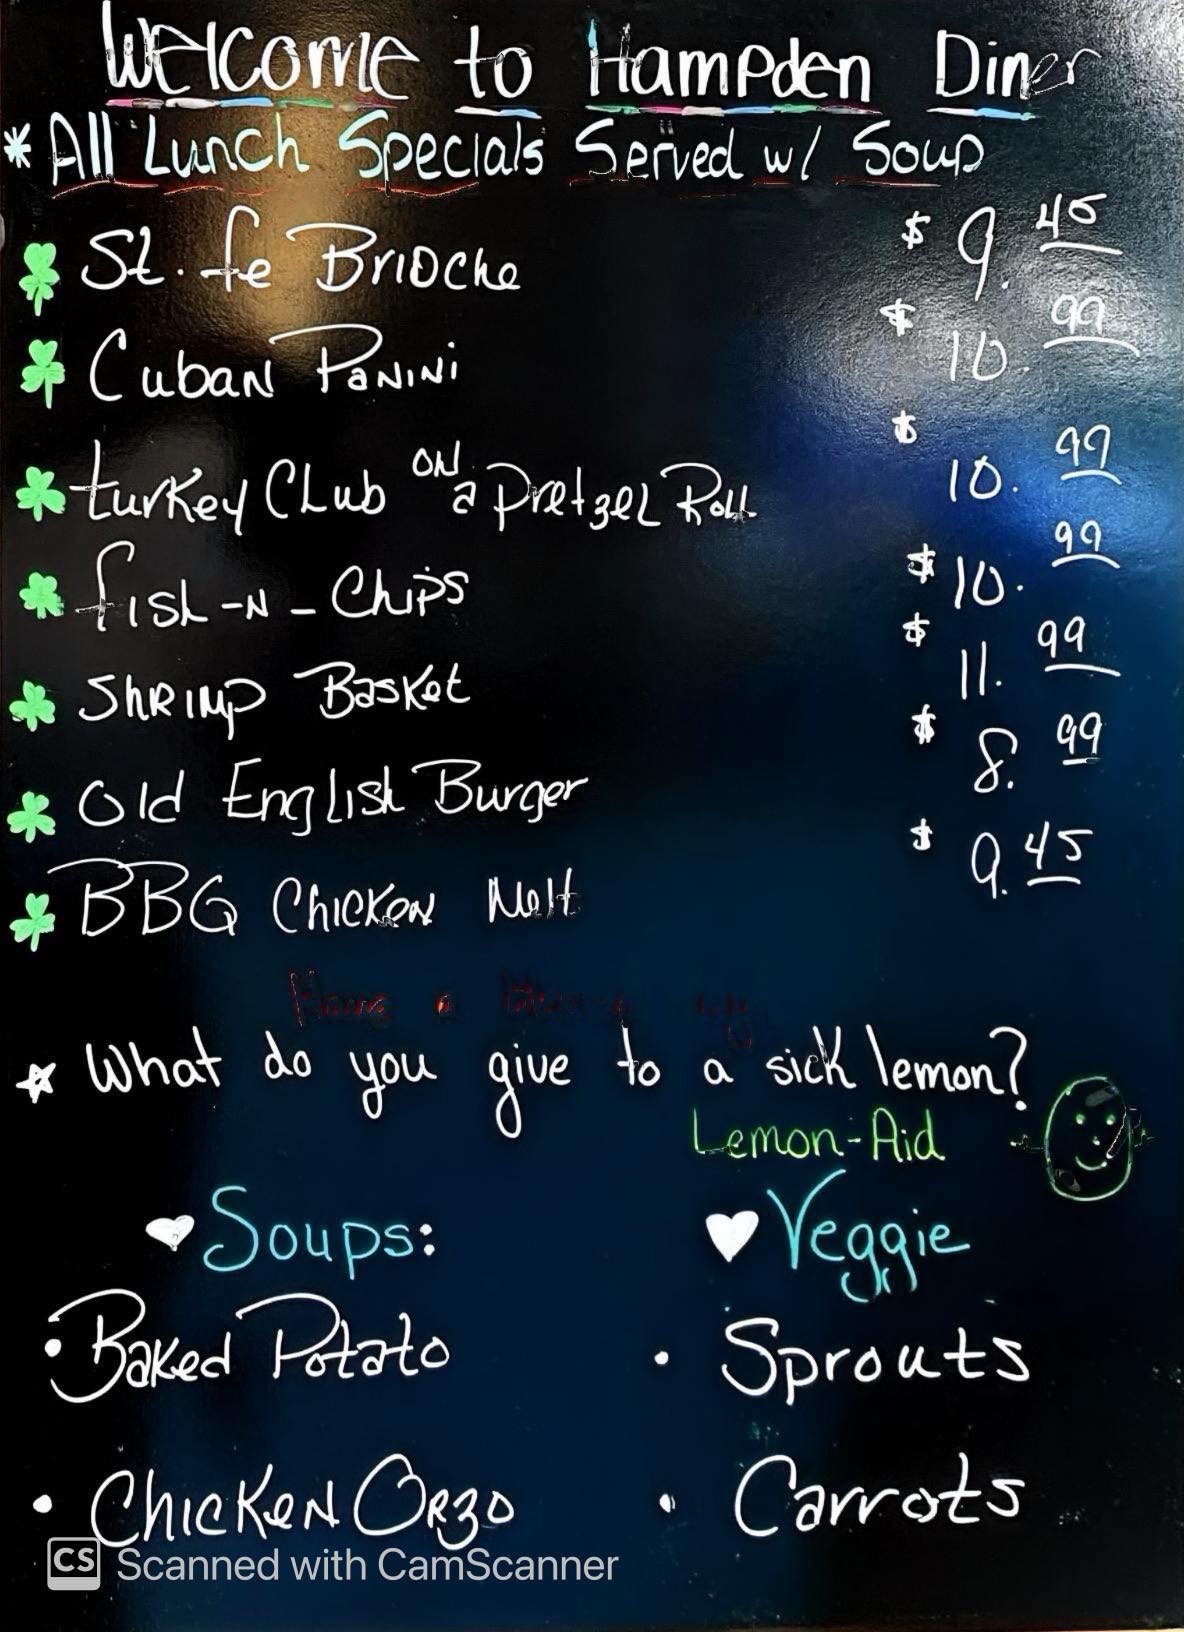 Welcome to Hampden Diner
* All Lunch Specials Served w/ Soup
St. fe Brioche $9.45
Cuban Panini $10.99
turkey Club on a Pretzel Roll $10.99
fish-n-Chips $10.99
Shrimp Basket $11.99
Old English Burger $8.99
BBQ Chicken Melt $9.45
What do you give to a sick lemon?
Lemon-Aid
Soups:
• Baked Potato
• Chicken Orzo
Veggie
• Sprouts
• Carrots
CS Scanned with CamScanner